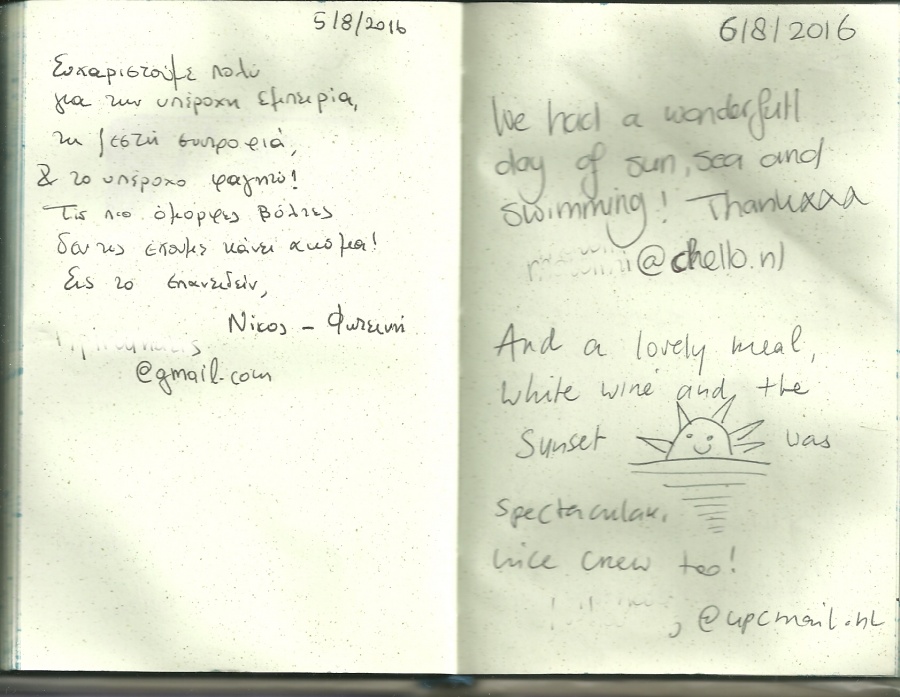 5/8/2016
Ευχαριστούμε πολύ
για την υπέροχη εμπειρία,
τη ζεστή συντροφιά,
& το υπέροχο φαγητό!
Τις πιο όμορφες βόλτες
δεν τις έχουμε κάνει ακόμα!
Εις το επανειδείν,
Νίκος - Φωτεινή
@gmail.com
6/8/2016
We had a wonderfull
day of sun, sea and
swimming! Thankxxx
@chello.nl
And a lovely meal,
white wine and the
Sunset was
spectacular.
nice crew too!
@upcmail.nl